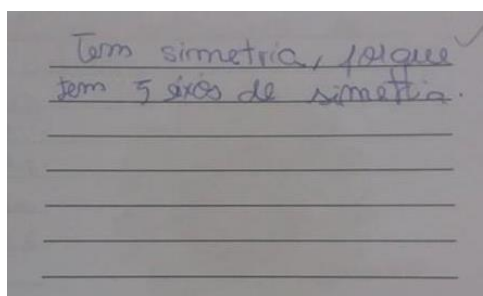 Tem simetria, porque
tem 5 éixos de simetria.